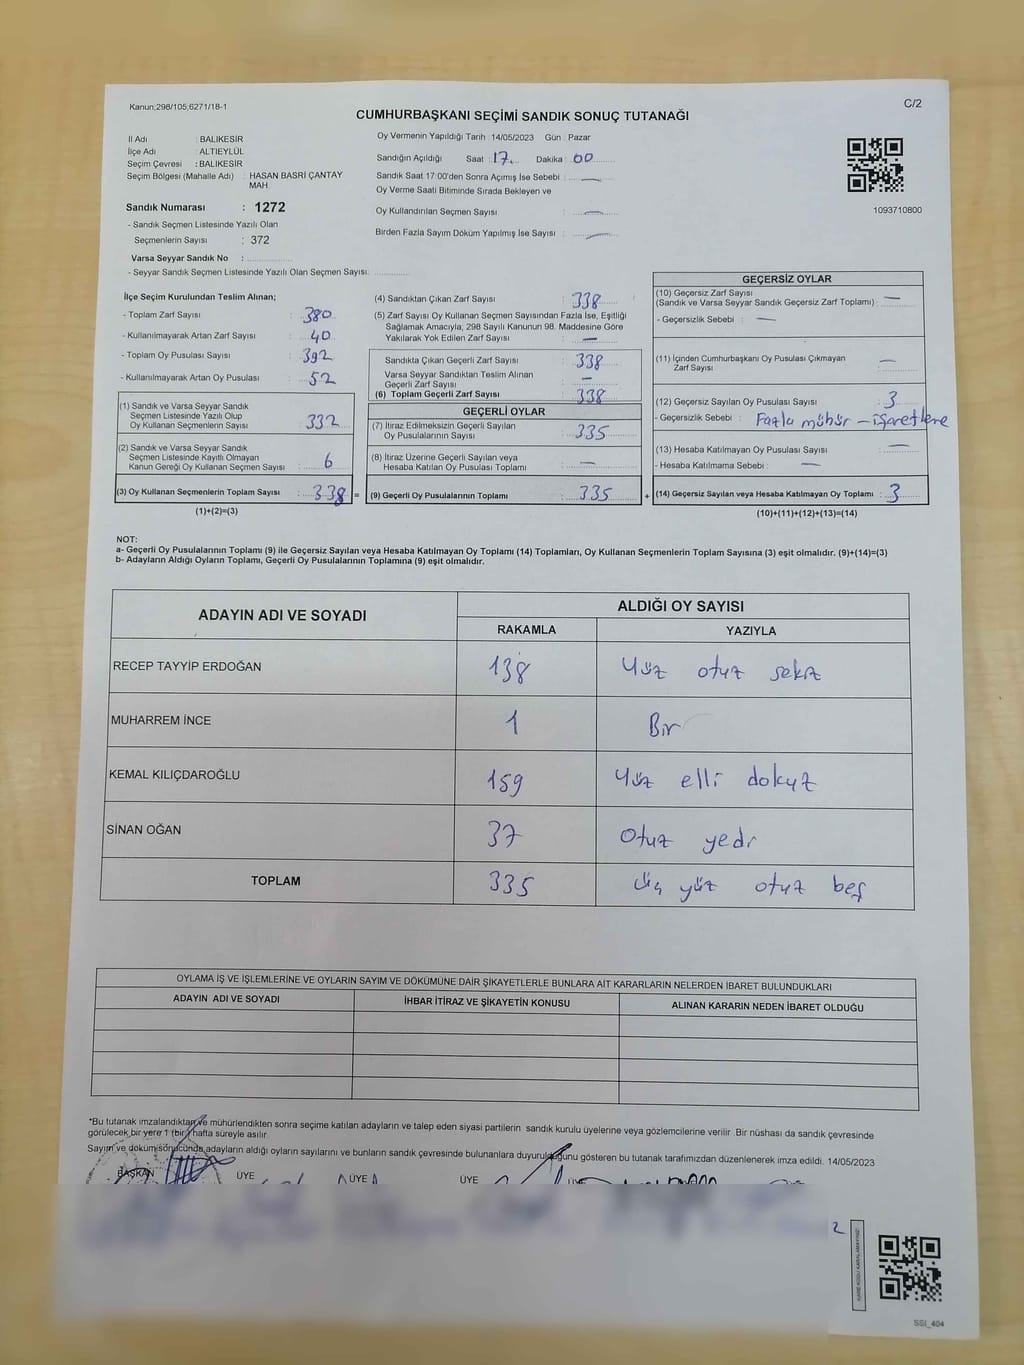 Kanun;298/105,6271/18-1
C/2
CUMHURBAŞKANI SEÇİMİ SANDIK SONUÇ TUTANAĞI
İl Adı : BALIKESİR
İlçe Adı : ALTIEYLÜL
Seçim Çevresi : BALIKESİR
Seçim Bölgesi (Mahalle Adı) : HASAN BASRİ ÇANTAY
MAH.
Sandık Numarası : 1272
- Sandık Seçmen Listesinde Yazılı Olan
Seçmenlerin Sayısı : 372
Varsa Seyyar Sandık No :
- Seyyar Sandık Seçmen Listesinde Yazılı Olan Seçmen Sayısı:
Oy Vermenin Yapıldığı Tarih : 14/05/2023 Gün : Pazar
Sandığın Açıldığı Saat : 17 Dakika : 00
Sandık Saat 17:00'den Sonra Açımış İse Sebebi : —
Oy Verme Saati Bitiminde Sırada Bekleyen ve
Oy Kullandırılan Seçmen Sayısı : —
Birden Fazla Sayım Döküm Yapılmış İse Sayısı : —
1093710800
İlçe Seçim Kurulundan Teslim Alınan;
- Toplam Zarf Sayısı : 380
- Kullanılmayarak Artan Zarf Sayısı : 40
- Toplam Oy Pusulası Sayısı : 392
- Kullanılmayarak Artan Oy Pusulası : 52
(1) Sandık ve Varsa Seyyar Sandık
Seçmen Listesinde Yazılı Olup
Oy Kullanan Seçmenlerin Sayısı : 332
(2) Sandık ve Varsa Seyyar Sandık
Seçmen Listesinde Kayıtlı Olmayan
Kanun Gereği Oy Kullanan Seçmen Sayısı : 6
(3) Oy Kullanan Seçmenlerin Toplam Sayısı : 338 =
(1)+(2)=(3)
(4) Sandıktan Çıkan Zarf Sayısı : 338
(5) Zarf Sayısı Oy Kullanan Seçmen Sayısından Fazla İse, Eşitliği
Sağlamak Amacıyla, 298 Sayılı Kanunun 98. Maddesine Göre
Yakılarak Yok Edilen Zarf Sayısı : —
Sandıkta Çıkan Geçerli Zarf Sayısı : 338
Varsa Seyyar Sandıktan Teslim Alınan
Geçerli Zarf Sayısı : —
(6) Toplam Geçerli Zarf Sayısı : 338
GEÇERLİ OYLAR
(7) İtiraz Edilmeksizin Geçerli Sayılan
Oy Pusulalarının Sayısı : 335
(8) İtiraz Üzerine Geçerli Sayılan veya
Hesaba Katılan Oy Pusulası Toplamı : —
(9) Geçerli Oy Pusulalarının Toplamı : 335 +
GEÇERSİZ OYLAR
(10) Geçersiz Zarf Sayısı
(Sandık ve Varsa Seyyar Sandık Geçersiz Zarf Toplamı) : —
- Geçersizlik Sebebi : —
(11) İçinden Cumhurbaşkanı Oy Pusulası Çıkmayan
Zarf Sayısı : —
(12) Geçersiz Sayılan Oy Pusulası Sayısı : 3
- Geçersizlik Sebebi : Fazla mühür – işaretleme
(13) Hesaba Katılmayan Oy Pusulası Sayısı : —
- Hesaba Katılmama Sebebi : —
(14) Geçersiz Sayılan veya Hesaba Katılmayan Oy Toplamı : 3
(10)+(11)+(12)+(13)=(14)
NOT:
a- Geçerli Oy Pusulalarının Toplamı (9) ile Geçersiz Sayılan veya Hesaba Katılmayan Oy Toplamı (14) Toplamları, Oy Kullanan Seçmenlerin Toplam Sayısına (3) eşit olmalıdır. (9)+(14)=(3)
b- Adayların Aldığı Oyların Toplamı, Geçerli Oy Pusulalarının Toplamına (9) eşit olmalıdır.
ADAYIN ADI VE SOYADI
ALDIĞI OY SAYISI
RAKAMLA YAZIYLA
RECEP TAYYİP ERDOĞAN 138 Yüz otuz sekiz
MUHARREM İNCE 1 Bir
KEMAL KILIÇDAROĞLU 159 Yüz elli dokuz
SİNAN OĞAN 37 Otuz yedi
TOPLAM 335 Üç yüz otuz beş
OYLAMA İŞ VE İŞLEMLERİNE VE OYLARIN SAYIM VE DÖKÜMÜNE DAİR ŞİKAYETLERLE BUNLARA AİT KARARLARIN NELERDEN İBARET BULUNDUKLARI
ADAYIN ADI VE SOYADI İHBAR İTİRAZ VE ŞİKAYETİN KONUSU ALINAN KARARIN NEDEN İBARET OLDUĞU
*Bu tutanak imzalandıktan ve mühürlendikten sonra seçime katılan adayların ve talep eden siyasi partilerin sandık kurulu üyelerine veya gözlemcilerine verilir. Bir nüshası da sandık çevresinde
görülecek bir yere 1 (bir) hafta süreyle asılır.
Sayım ve döküm sonucunda adayların aldığı oyların sayılarını ve bunların sandık çevresinde bulunanlara duyurulduğunu gösteren bu tutanak tarafımızdan düzenlenerek imza edildi. 14/05/2023
BAŞKAN ÜYE ÜYE ÜYE ÜYE
2
KARE KODU KARALAMAYINIZ!
SSI_404